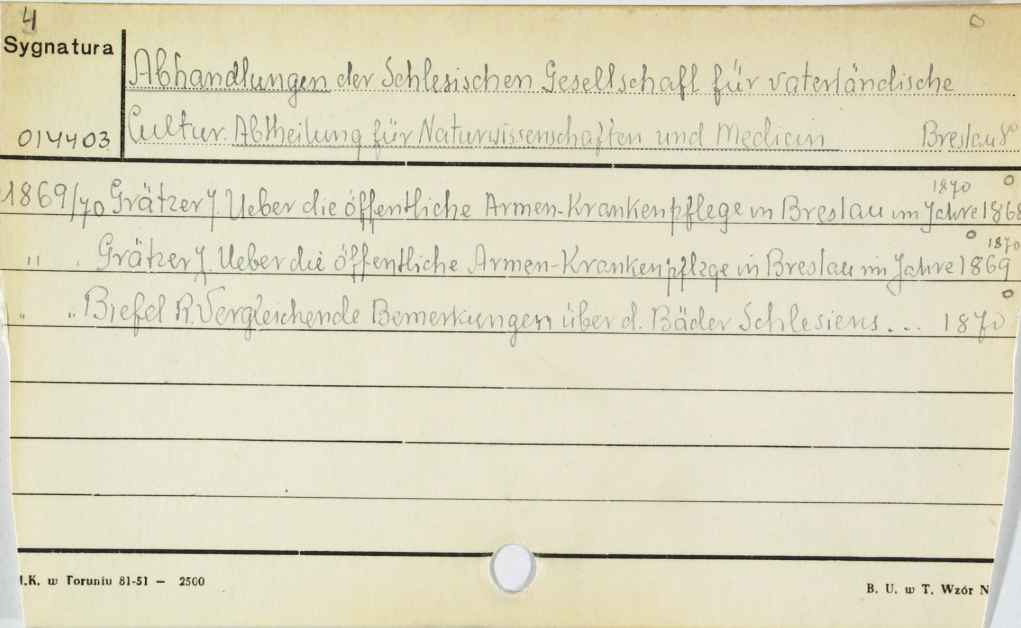 4
Sygnatura
Abhandlungen der Schlesischen Gesellschaft für vaterländische
014403 Cultur. Abtheilung für Naturwissenschaften und Medicin Breslau 8°
1870
1869/70 Grätzer J. Ueber die öffentliche Armen-Krankenpflege in Breslau im Jahre 1868
1870
" . Grätzer J. Ueber die öffentliche Armen-Krankenpflege in Breslau im Jahre 1869
" " Biefel R. Vergleichende Bemerkungen über d. Bäder Schlesiens... 1870
.K. w Toruniu 81-51 — 2500
B. U. w T. Wzór N